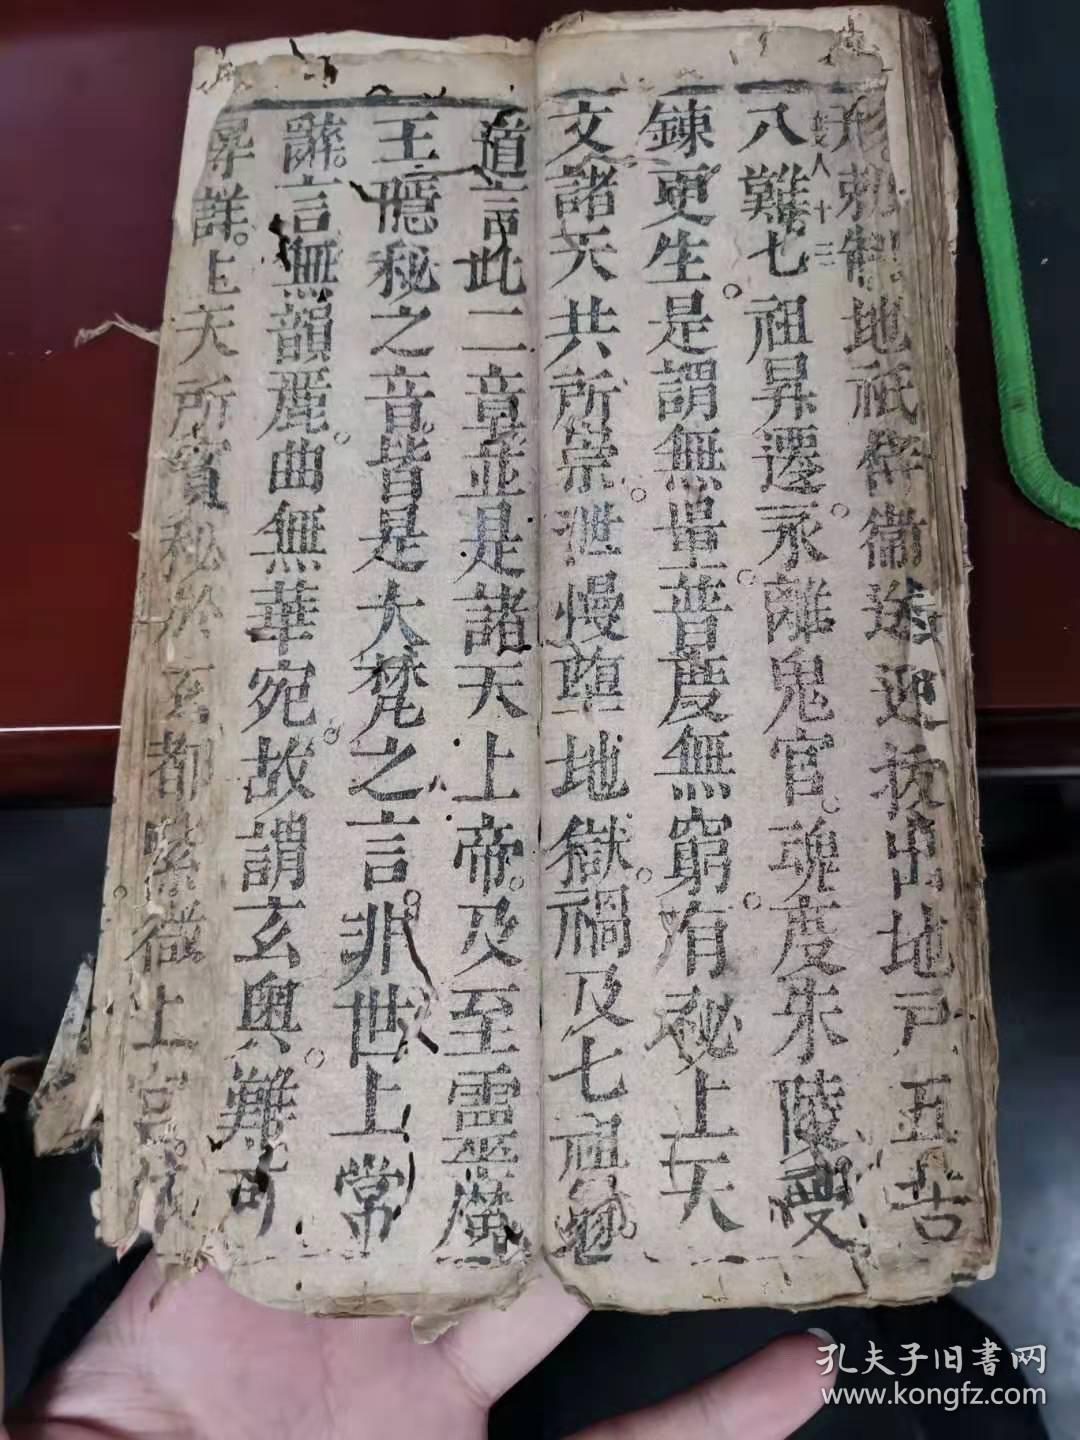 形勑制地祇侍衛送迎拔出地戸五苦
八難七祖昇遷永離鬼官魂度朱陵受
鍊更生是謂無量普度無窮有秘上天
文諸天共所崇泄慢墮地獄禍及七祖翁
度人十三
道言此二章並是諸天上帝及至靈魔
王隱秘之音皆是大梵之言非世上常
辭言無韻麗曲無華宛故謂玄奥難可
尋詳上天所寶秘於玄都紫微上宮依
孔夫子旧書网
www.kongfz.com